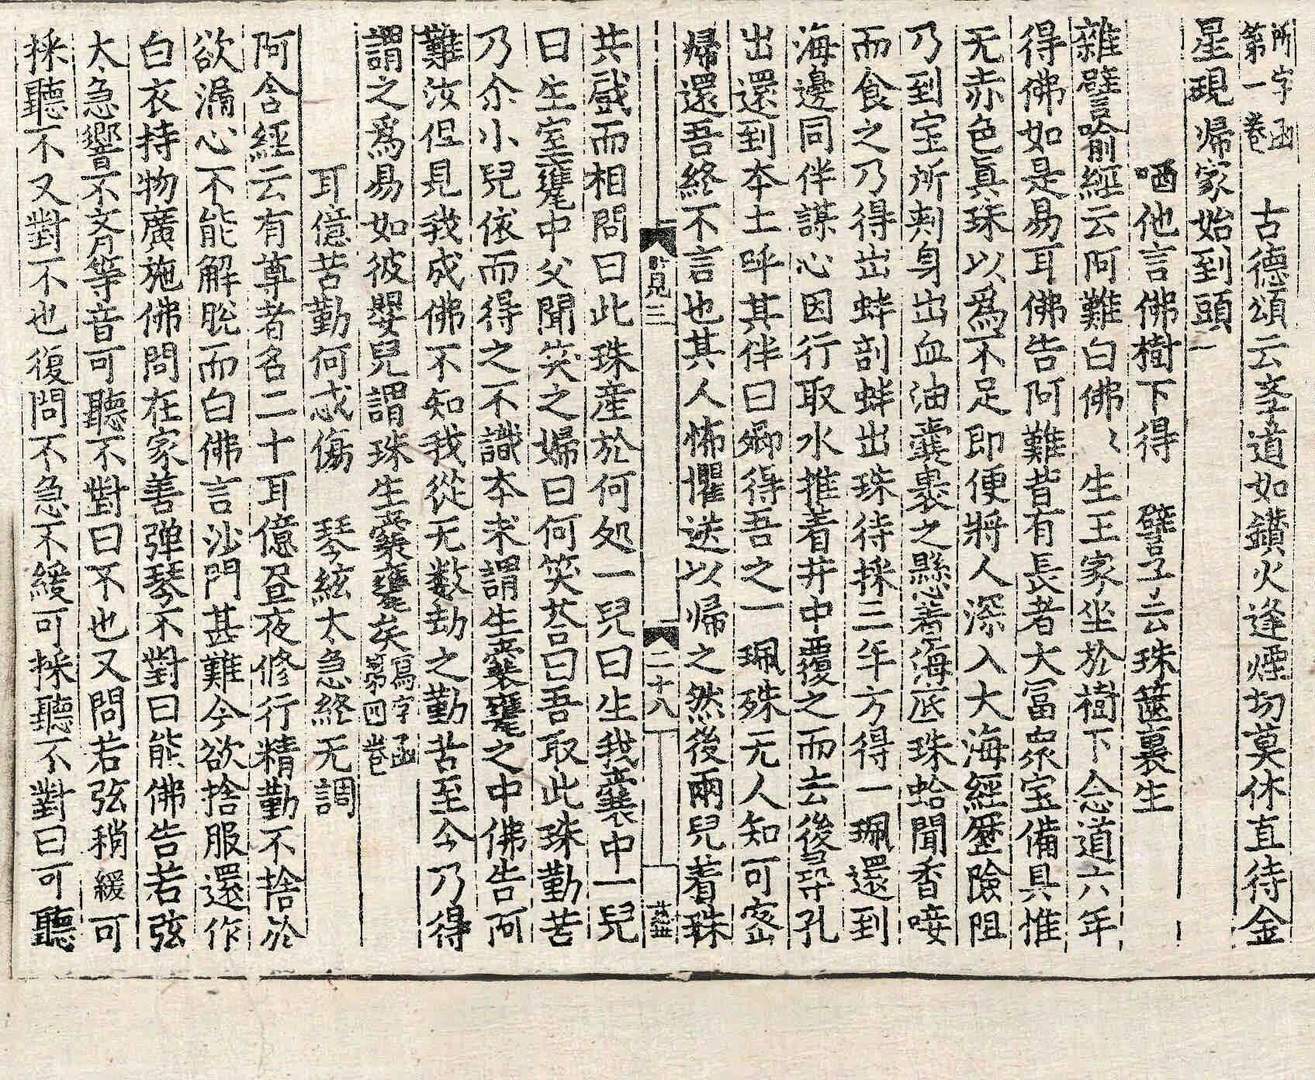 所字函第一卷　古德頌云孝道如鑽火逢煙切莫休直待金
星現帰家始到頭
　　哂他言佛樹下得　譬子云珠篋裏生
雜譬喻經云阿難白佛〻生王家坐於樹下念道六年
得佛如是易耳佛告阿難昔有長者大冨衆宝備具惟
无赤色真珠以爲不足即便將人深入大海經歷險阻
乃到宝所刾身出血油囊裹之懸着海底珠蛤聞香唼
而食之乃得出蚌剖蚌出珠待採三年方得一珮還到
海邊同伴謀心因行取水推着井中覆之而去後孔
出還到本土呼其伴曰卿得吾之一珮殊无人知可密
帰還吾終不言也其人怖懼送以帰之然後兩兒着珠
見三　二十八
共戲而相問曰此珠産於何処一兒曰生我囊中一兒
曰生室甕中父聞笑之婦曰何笑荅曰吾取此珠勤苦
乃尒小兒依而得之不識本末謂生囊甕之中佛告阿
難汝但見我成佛不知我從无数劫之勤苦至今乃得
謂之爲易如彼嬰兒謂珠生囊甕矣寫字函第四卷
　　耳億苦勤何忒傷　琴絃太急終无調
阿含經云有尊者名二十耳億昼夜修行精勤不捨於
欲漏心不能解脫而白佛言沙門甚難今欲捨服還作
白衣持物廣施佛問在家善弹琴不對曰能佛告若弦
太急響不文等音可聽不對曰不也又問若弦稍緩可
採聽不又對不也復問不急不緩可採聽不對曰可聽